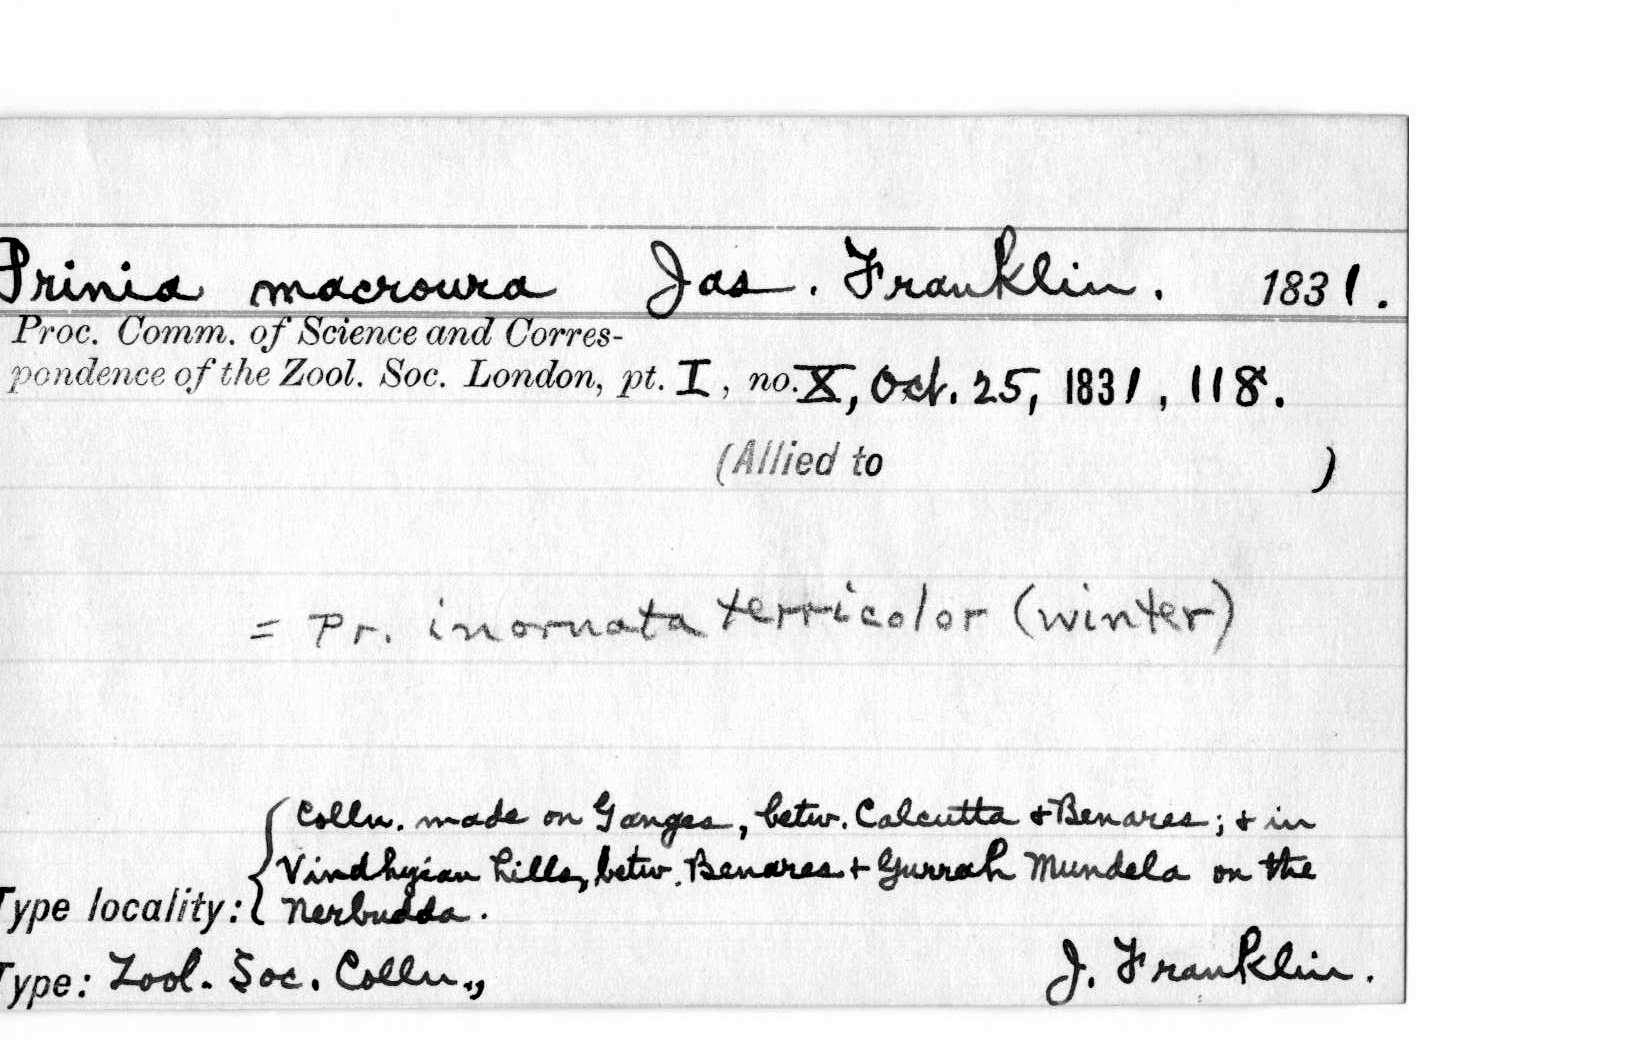 Prinia macroura Jas. Franklin. 1831.
Proc. Comm. of Science and Corres-
pondence of the Zool. Soc. London, pt. I, no. X, Oct. 25, 1831, 118.
(Allied to )
= Pr. inornata terricolor (winter)
Colln. made on Ganges, betw. Calcutta + Benares; + in
Vindhyian hills, betw. Benares + Gurrah Mundela on the
Type locality: Nerbudda.
Type: Zool. Soc. Colln., J. Franklin.